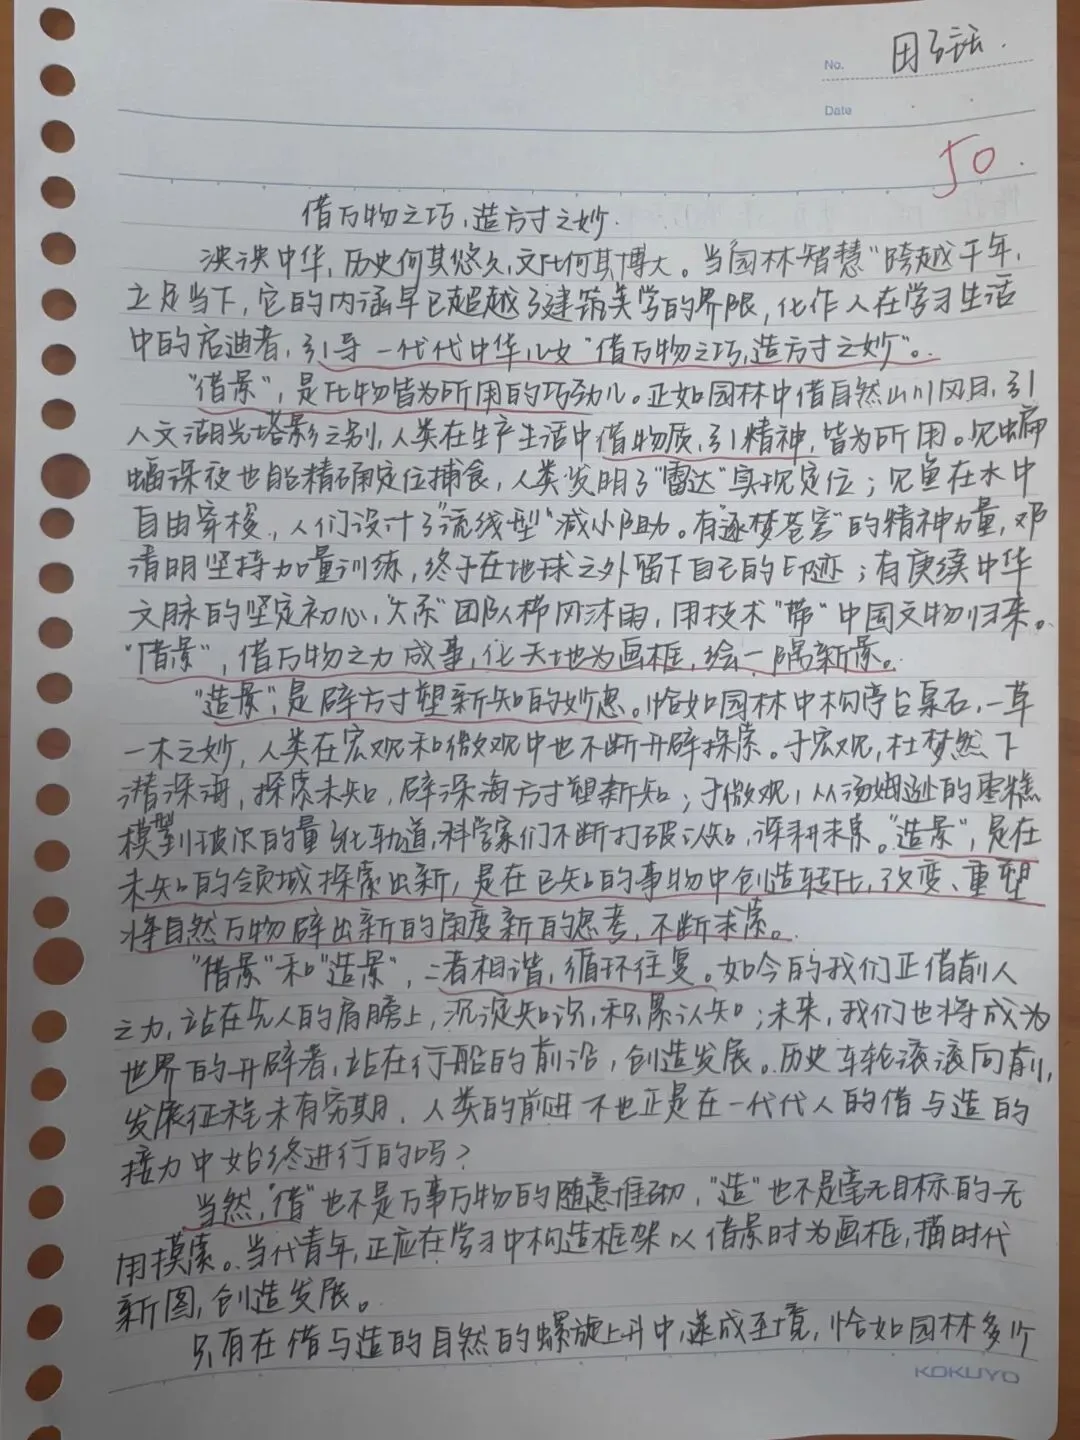 No. 田
Date
50.
借万物之巧,造方寸之妙.
泱泱中华,历史何其悠久,文化何其博大。当"园林智慧"跨越千年,
立足当下,它的内涵早已超越了建筑美学的界限,化作人在学习生活
中的启迪者,引导一代代中华儿女"借万物之巧,造方寸之妙"。
"借景",是化物皆为所用的巧劲儿。正如园林中借自然山川风月,引
人文湖光塔影之别,人类在生产生活中借物质,引精神,皆为所用。见蝙
蝠深夜也能精确定位捕食,人类发明了"雷达"实现定位;见鱼在水中
自由穿梭,人们设计了"流线型"减小阻助。有"逐梦苍穹"的精神力量,邓
清明坚持加量训练,终于在地球之外留下自己的印迹;有赓续中华
文脉的坚定初心,团队栉风沐雨,用技术"带"中国文物归来。
"借景",借万物之力成事,化天地为画框,绘一隅新景。
"造景",是辟方寸塑新知的妙思。恰如园林中构亭台泉石,一草
一木之妙,人类在宏观和微观中也不断开辟探索。于宏观,杜梦然下
潜深海,探索未知,辟深海方寸塑新知;于微观,从汤姆逊的枣糕
模型到玻尔的量子化轨道,科学家们不断打破认知,深耕未来。"造景",是在
未知的领域探索出新,是在已知的事物中创造转化,改变、重塑
将自然万物辟出新的角度新的思考,不断求索。
"借景"和"造景",二者相谐,循环往复。如今的我们正借前人
之力,站在先人的肩膀上,沉淀知识,积累认知;未来,我们也将成为
世界的开辟者,站在行船的前沿,创造发展。历史车轮滚滚向前,
发展征程未有穷期,人类的前进不也正是在一代代人的借与造的
接力中始终进行的吗?
当然,"借"也不是万事万物的随意堆砌,"造"也不是毫无目标的无
用摸索。当代青年,正应在学习中构造框架以借景时为画框,描时代
新图,创造发展。
只有在借与造的自然的螺旋上升中,遂成至境,恰如园林多个
KOKUYO